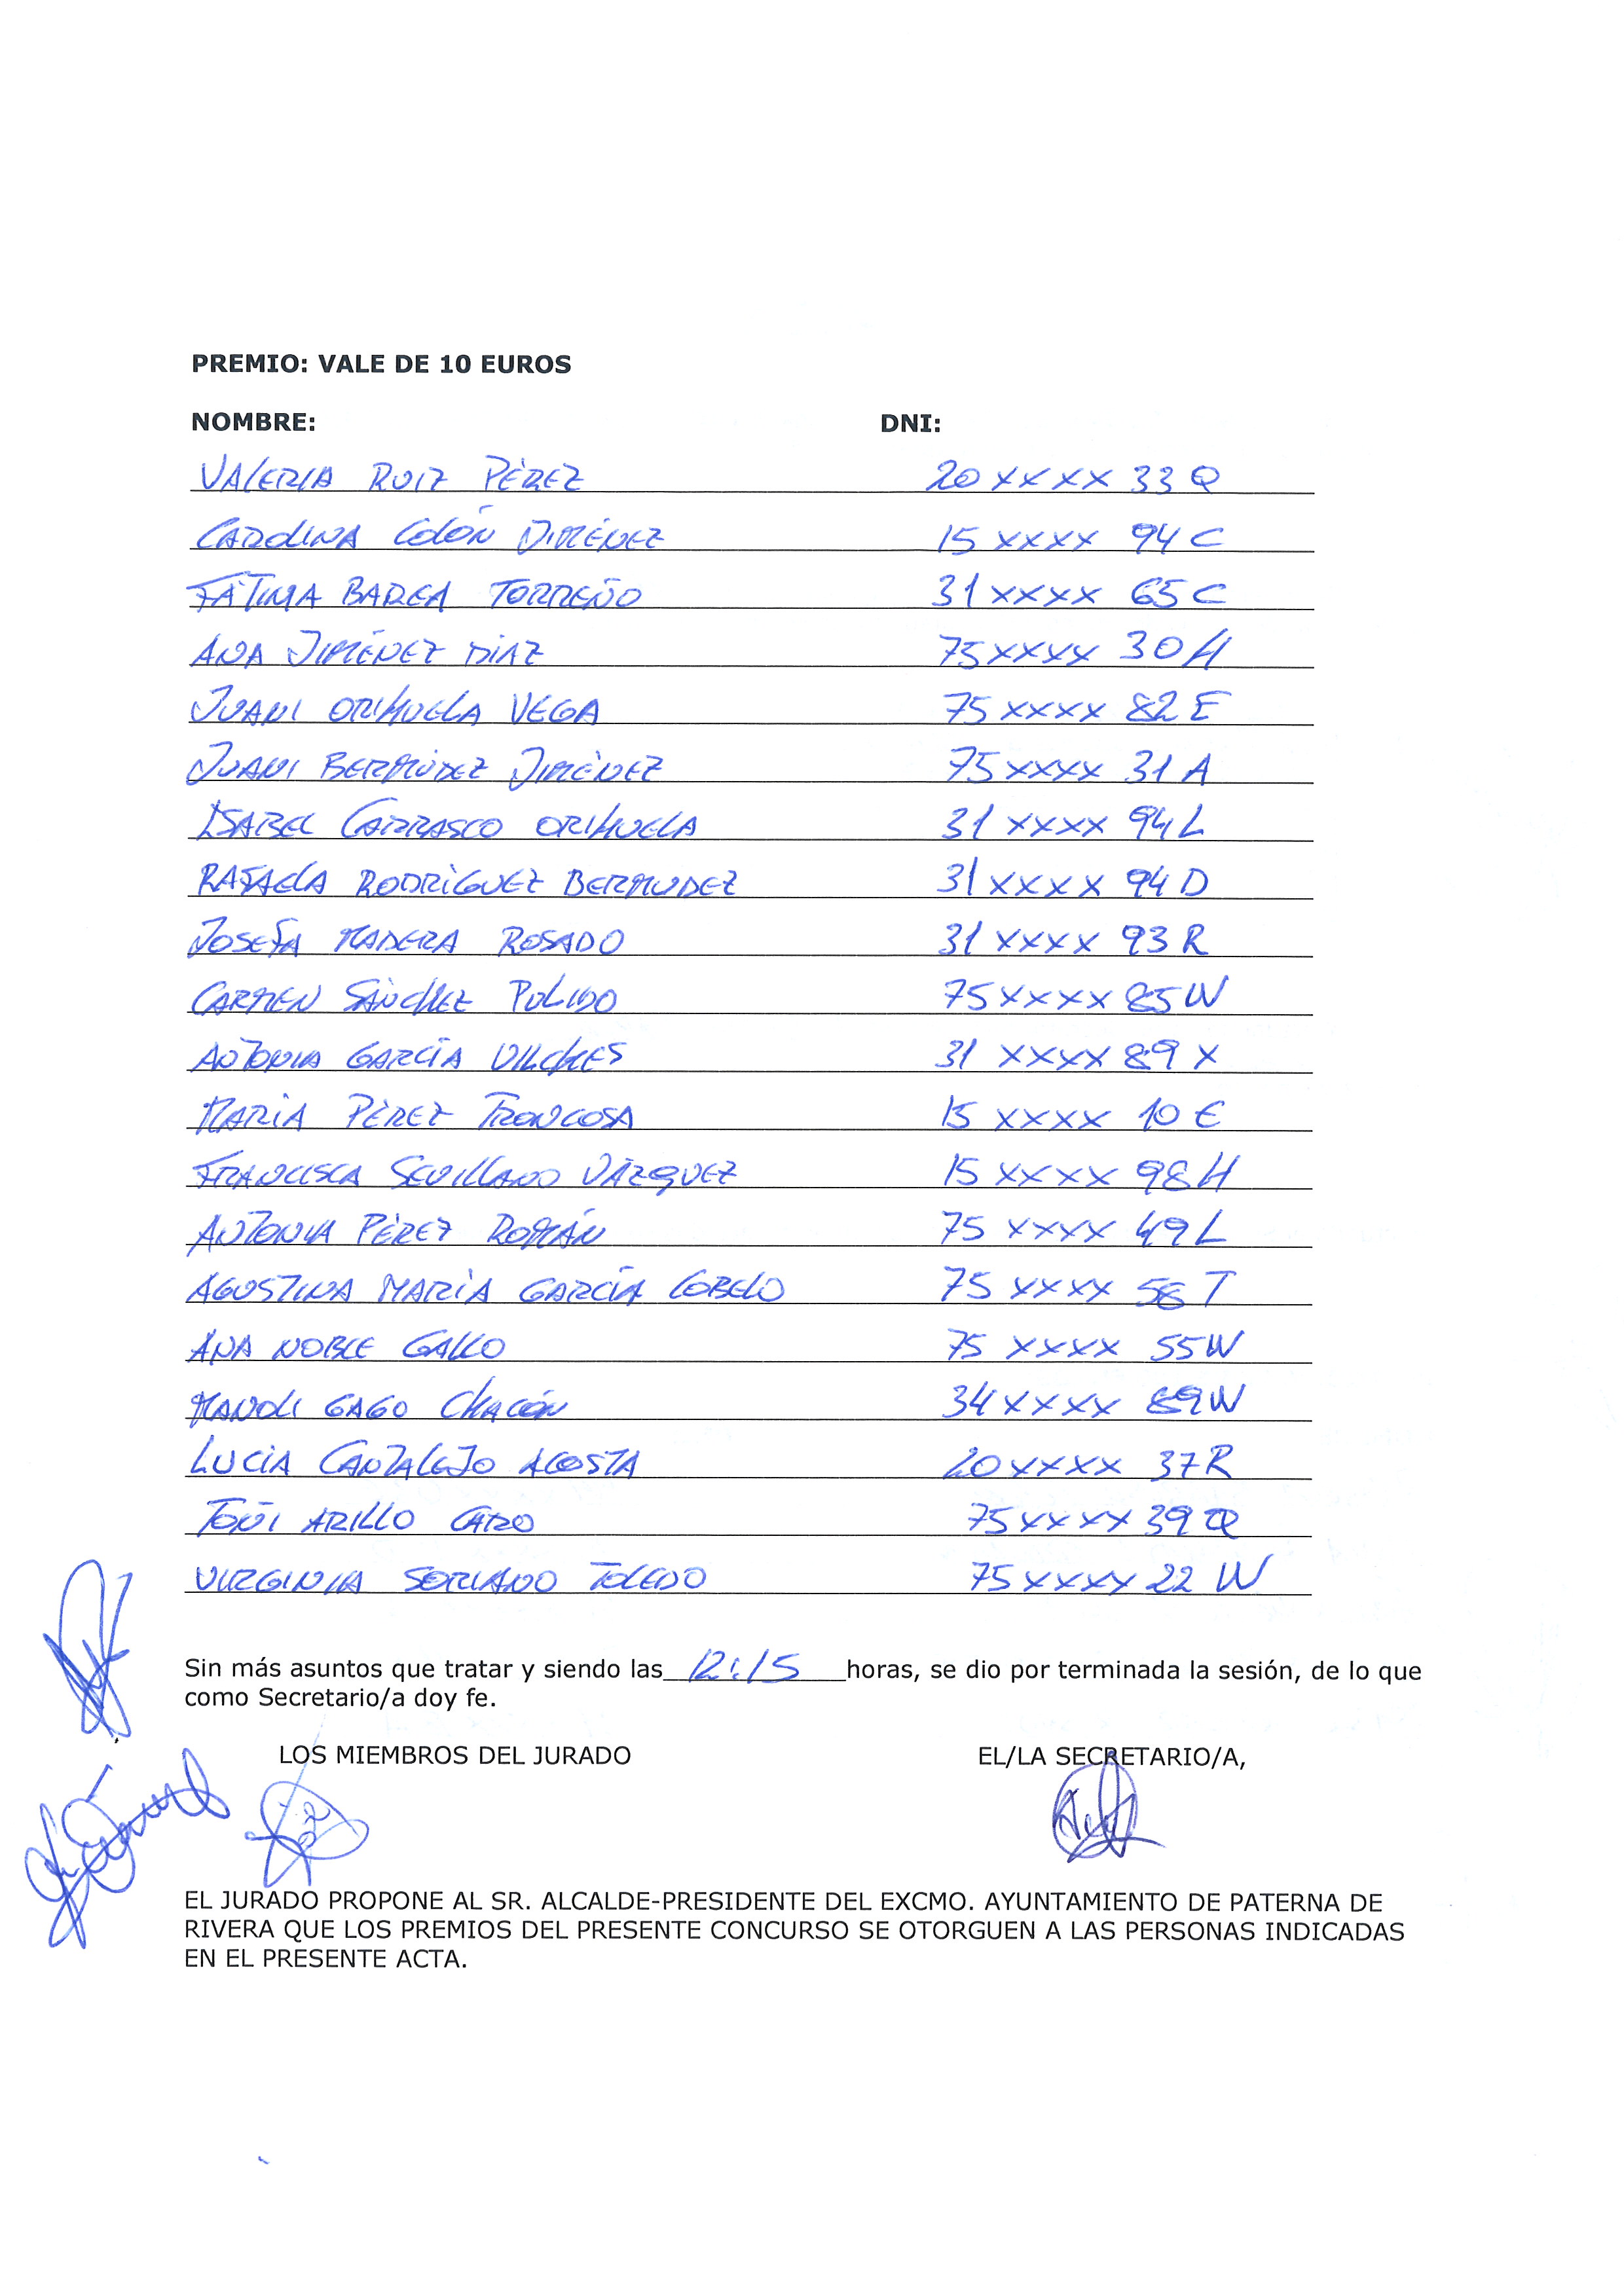 PREMIO: VALE DE 10 EUROS
NOMBRE: DNI:
VALERIA RUIZ PÉREZ 20 XXXX 33 Q
CAROLINA COLÓN JIMÉNEZ 15 XXXX 94 C
FÁTIMA BAREA TORREÑO 31 XXXX 65 C
ANA JIMÉNEZ DÍAZ 75 XXXX 30 H
JUANI ORIHUELA VEGA 75 XXXX 82 E
JUANI BERMÚDEZ JIMÉNEZ 75 XXXX 31 A
ISABEL CARRASCO ORIHUELA 31 XXXX 94 L
RAFAELA RODRÍGUEZ BERMUDEZ 31 XXXX 94 D
JOSEFA MADERA ROSADO 31 XXXX 93 R
CARMEN SÁNCHEZ PULIDO 75 XXXX 85 W
ANTONIA GARCÍA VILCHES 31 XXXX 89 X
MARÍA PÉREZ FRONCOSA 15 XXXX 10 E
FRANCISCA SEVILLANO VÁZQUEZ 15 XXXX 98 H
ANTONIA PÉREZ ROMÁN 75 XXXX 49 L
AGOSTINA MARÍA GARCÍA COBELO 75 XXXX 58 T
ANA NOBLE GALLO 75 XXXX 55 W
MANOLI GAGO CHACÓN 34 XXXX 89 W
LUCÍA CANTALEJO ACOSTA 20 XXXX 37 R
TOÑI ARILLO CARO 75 XXXX 39
VIRGINIA SORIANO TOLEDO 75 XXXX 22 W
Sin más asuntos que tratar y siendo las 12:15 horas, se dio por terminada la sesión, de lo que
como Secretario/a doy fe.
LOS MIEMBROS DEL JURADO EL/LA SECRETARIO/A,
EL JURADO PROPONE AL SR. ALCALDE-PRESIDENTE DEL EXCMO. AYUNTAMIENTO DE PATERNA DE
RIVERA QUE LOS PREMIOS DEL PRESENTE CONCURSO SE OTORGUEN A LAS PERSONAS INDICADAS
EN EL PRESENTE ACTA.